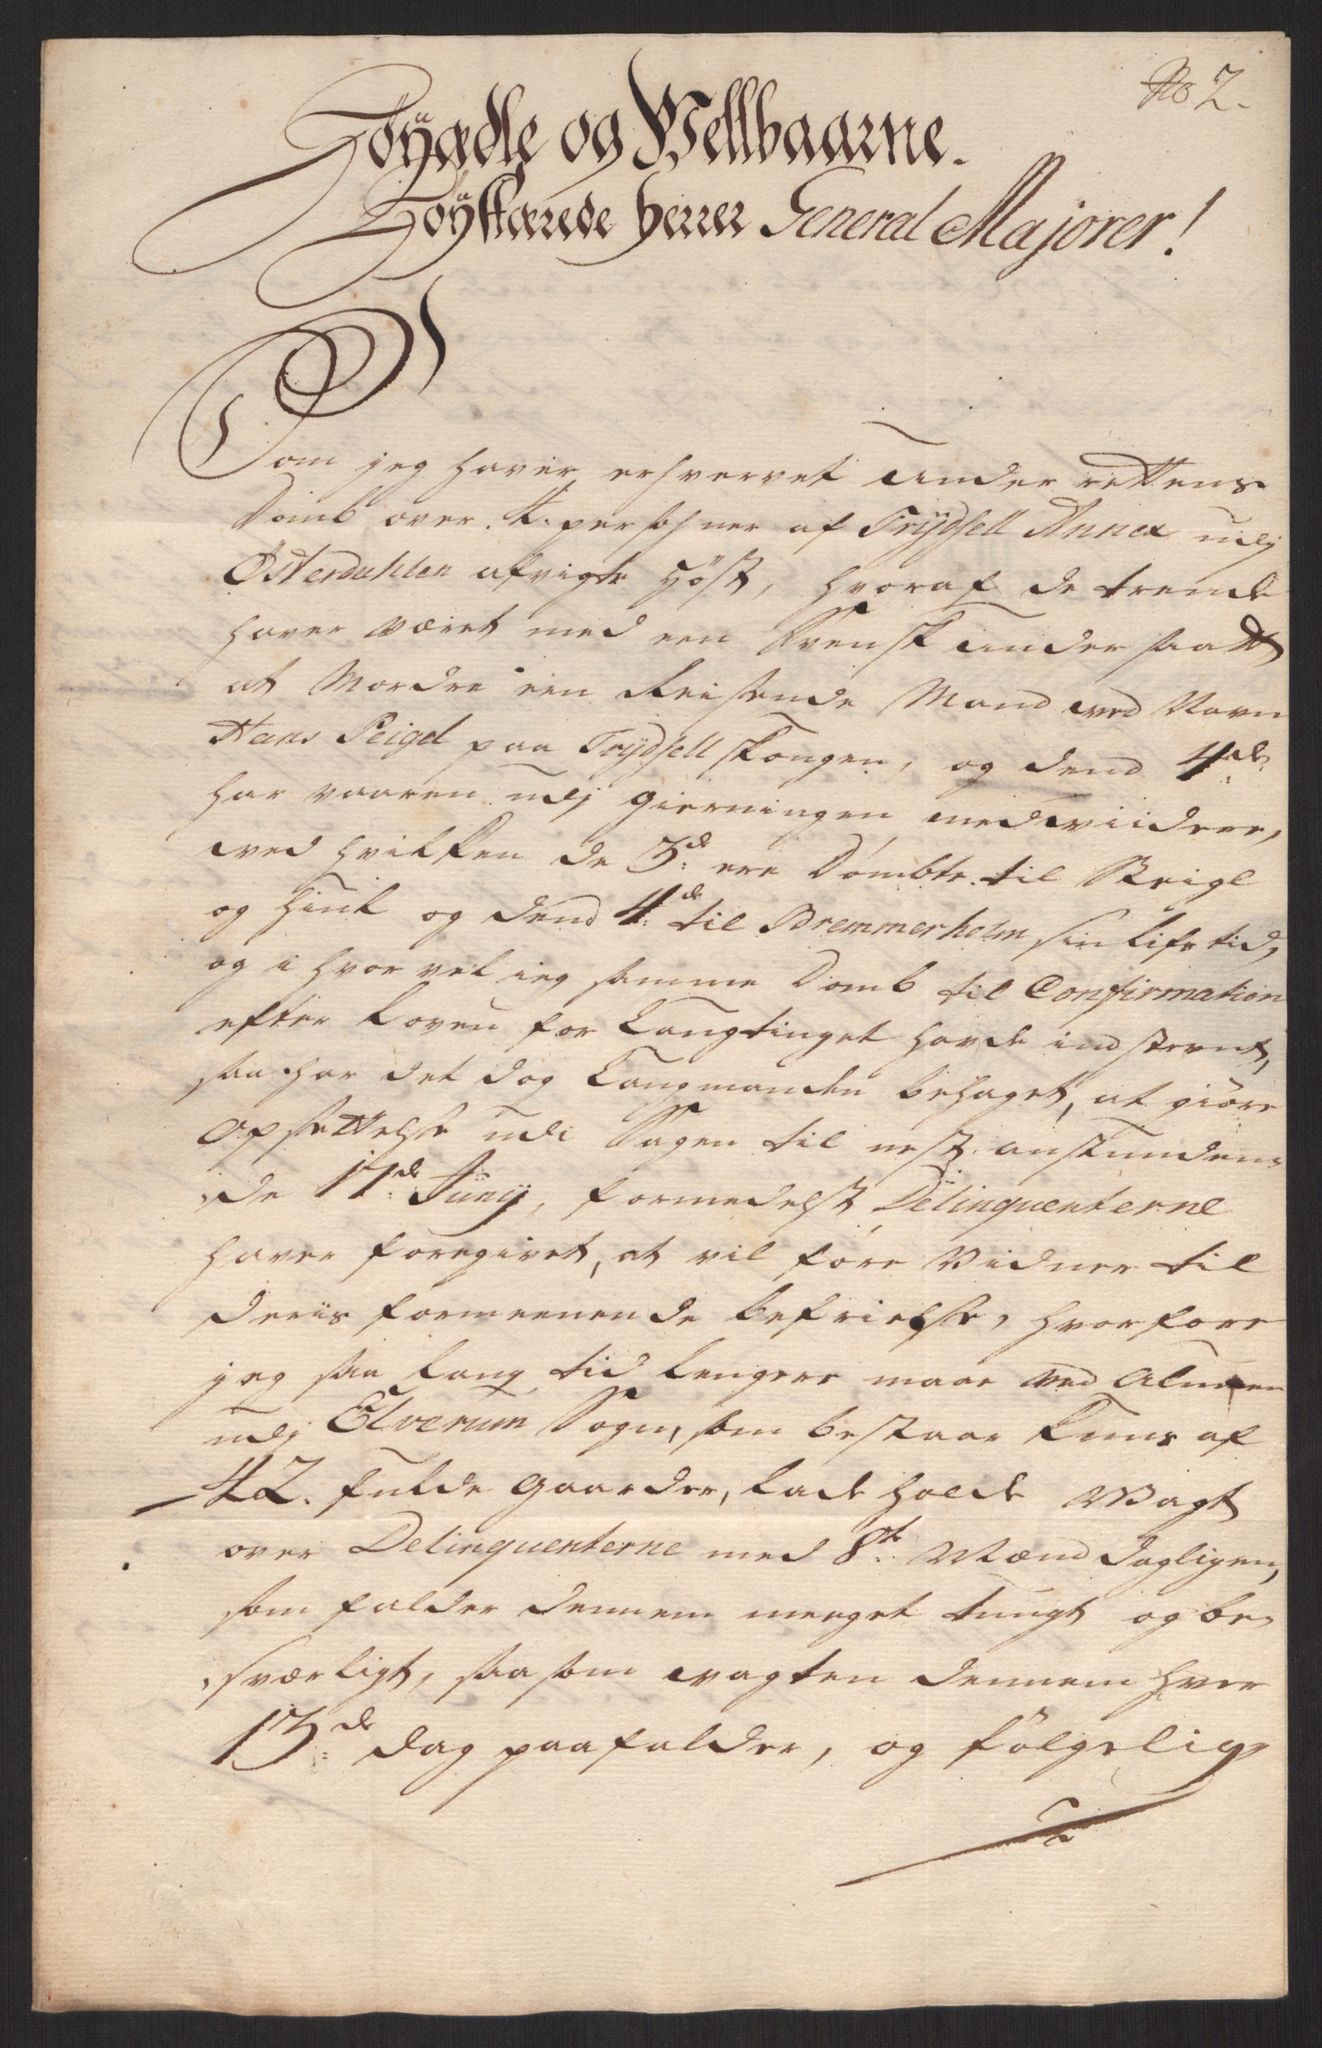 No 2.
Höyædle og Wellbaarne.
Höystærede herrer General Majorer!
Som jeg haver erhvervet Under rettens
Domb over 4. persohner af Trydsell Annex udj
Österdahlen afvigte Höst, hvoraf de trende
haver været med een Svensk Undersaatt
at Mordre een Reisende Mand ved Navn
Hans Peigel paa Trydsell skougen, og dend 4de:
har vaaren udj gierningen medviidere,
ved hvilken de 3de: ere Dömbte til Steigl
og Hiul og dend 4de: til Bremmerholm sin Lifs tid,
og i hvor vel ieg samme Domb til Confirmation
efter Loven for Laugtinget havde indstevnt,
saa har det dog Laugmanden behaget, at giöre
Opsettelse udi Sagen til nest anstunden-
de 17de: Junij, formedelst Delinquenterne
haver foregivet, at vil före Vidner til
deris formeenende befrielse, hvorfore
jeg saa lang tid lengere maae ved Almuen
udj Elverum Sogn, som bestaar kuns af
42. fulde gaarder, lade holde Wagt
over Delinquenterne med 8te: Mænd dagligen,
som falder dennem meeget tungt og be-
sværligt, saasom vagten dennem hver
13de: dag paafalder, og fölgelig